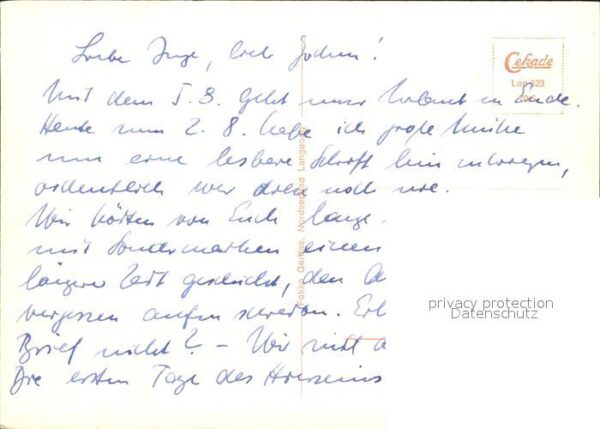 Liebe Inge, lieber Jochen!
Mit dem 5.8. geht unser Urlaub zu Ende.
Heute am 2.8. habe ich große Mühe
um eine lesbare Schrift hinzukriegen,
ordentlich war diese noch nie.
Wir hörten von Euch lange
mit Sondermarken einen
längere Zeit geschickt, den
vergessen aufzuschreiben.
Brief nicht? - Wir sind
Die ersten Tage des Hierseins
Cekade
Lan 523
Fokko Gerdes, Nordseebad Langeoog
privacy protection
Datenschutz